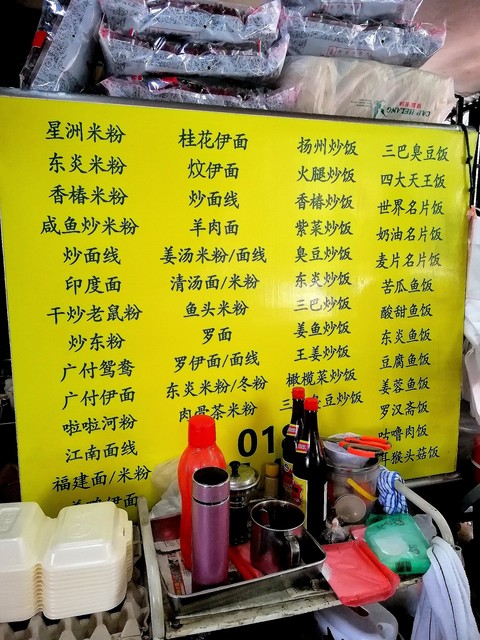 星洲米粉
东炎米粉
香椿米粉
咸鱼炒米粉
炒面线
印度面
干炒老鼠粉
炒东粉
广付鸳鸯
广付伊面
啦啦河粉
江南面线
福建面/米粉
伊面
桂花伊面
炆伊面
炒面线
羊肉面
姜汤米粉/面线
清汤面/米粉
鱼头米粉
罗面
罗伊面/面线
东炎米粉/冬粉
肉骨茶米粉
01
扬州炒饭
火腿炒饭
香椿炒饭
紫菜炒饭
臭豆炒饭
东炎炒饭
三巴炒饭
姜鱼炒饭
王姜炒饭
橄榄菜炒饭
三 豆炒饭
三巴臭豆饭
四大天王饭
世界名片饭
奶油名片饭
麦片名片饭
苦瓜鱼饭
酸甜鱼饭
东炎鱼饭
豆腐鱼饭
姜蓉鱼饭
罗汉斋饭
咕噜肉饭
猴头菇饭